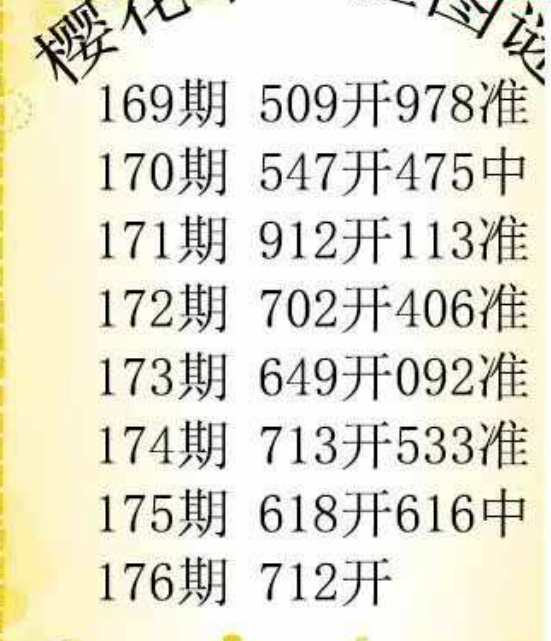 樱花
图谜
169期 509开978准
170期 547开475中
171期 912开113准
172期 702开406准
173期 649开092准
174期 713开533准
175期 618开616中
176期 712开